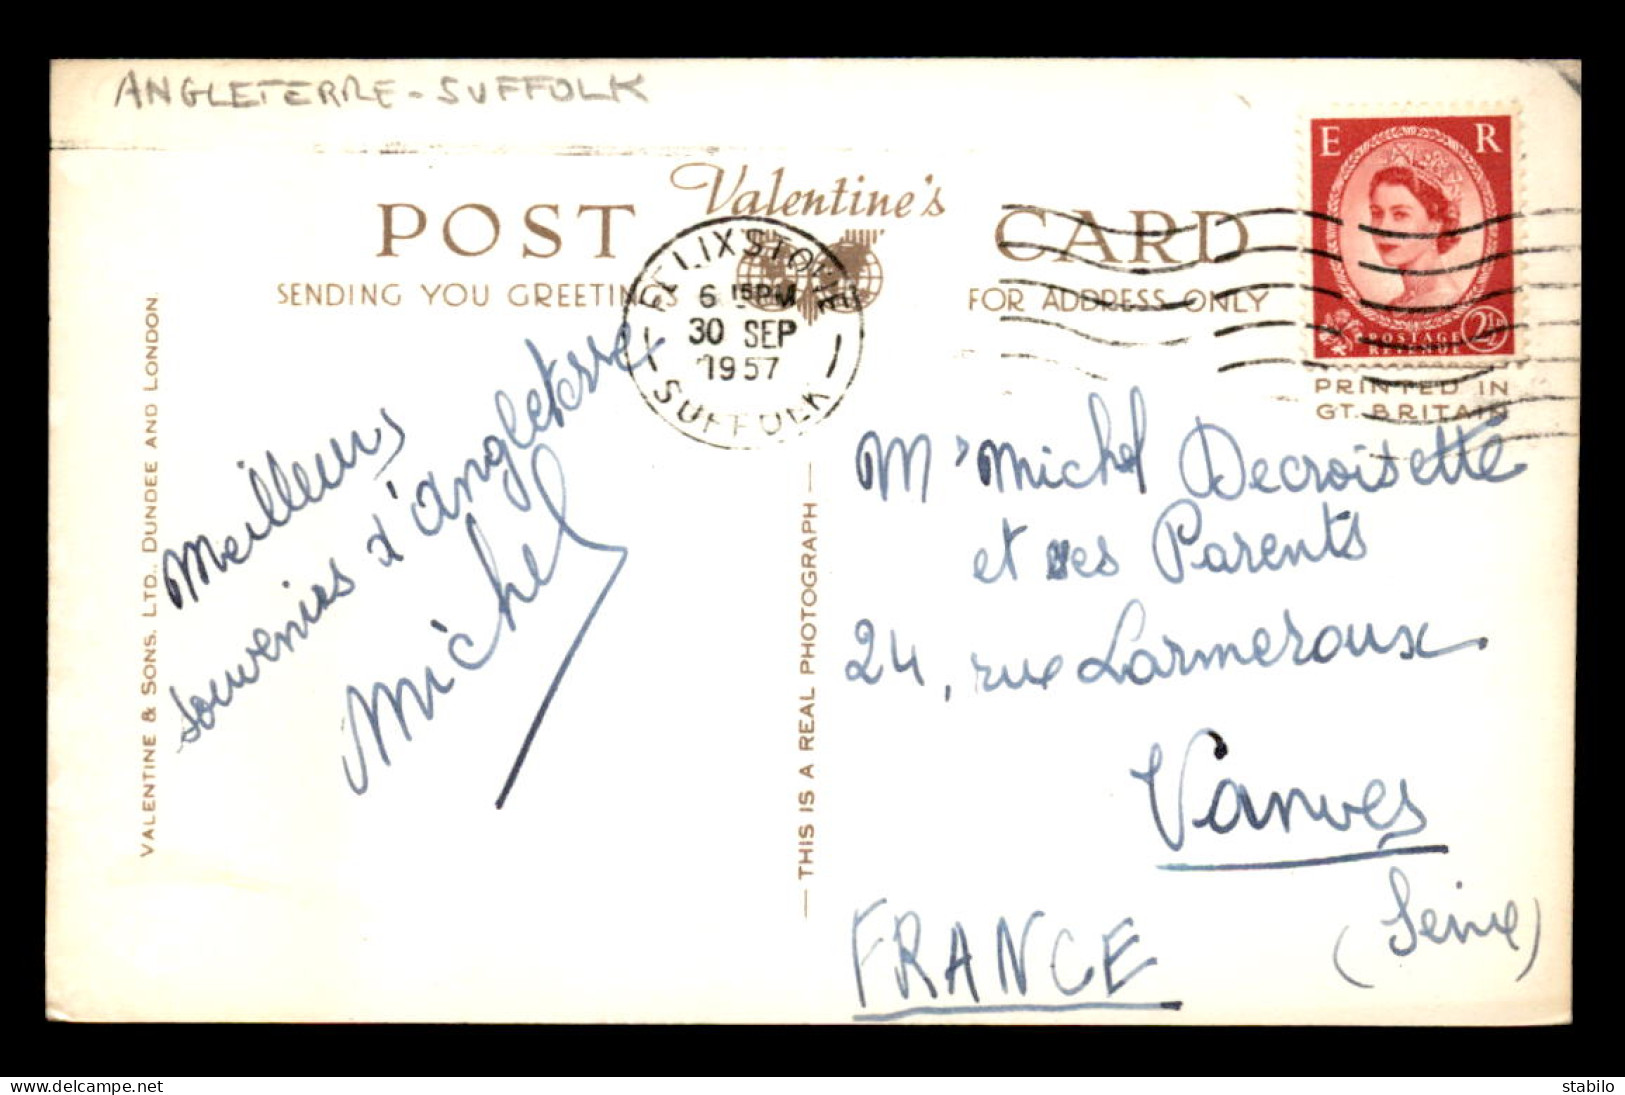 ANGLETERRE - SUFFOLK
POST Valentine's CARD
SENDING YOU GREETINGS
FOR ADDRESS ONLY
FELIXSTOWE
6 15 PM
30 SEP
1957
SUFFOLK
E R
POSTAGE
REVENUE
2½D
PRINTED IN
GT. BRITAIN
VALENTINE & SONS, LTD., DUNDEE AND LONDON.
Meilleurs
souvenirs d'angleterre
Michel
THIS IS A REAL PHOTOGRAPH
Mr Michel Decroisette
et ses Parents
24, rue Larmeroux
Vanves
(Seine)
FRANCE
https://www.delcampe.net
stabilo